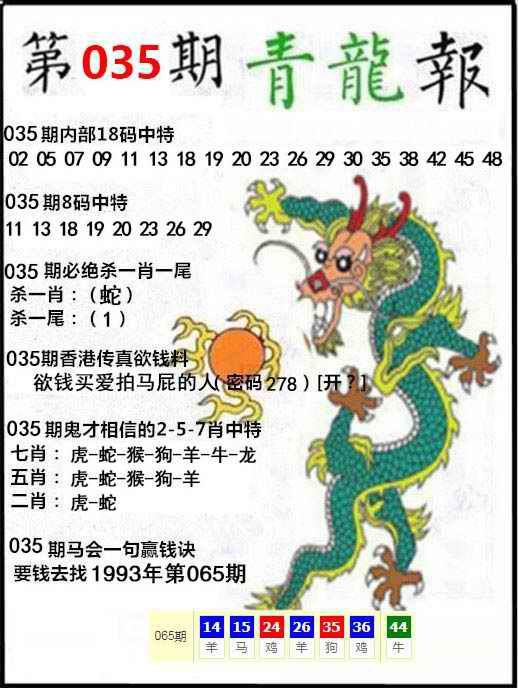 第035期青龍報
035期内部18码中特
02 05 07 09 11 13 18 19 20 23 26 29 30 35 38 42 45 48
035期8码中特
11 13 18 19 20 23 26 29
035期必绝杀一肖一尾
杀一肖：（蛇）
杀一尾：（1）
035期香港传真欲钱料
欲钱买爱拍马屁的人（密码278）[开？]
035期鬼才相信的2-5-7肖中特
七肖：虎-蛇-猴-狗-羊-牛-龙
五肖：虎-蛇-猴-狗-羊
二肖：虎-蛇
035期马会一句赢钱诀
要钱去找1993年第065期
065期 14 15 24 26 35 36 44
羊 马 鸡 羊 狗 鸡 牛